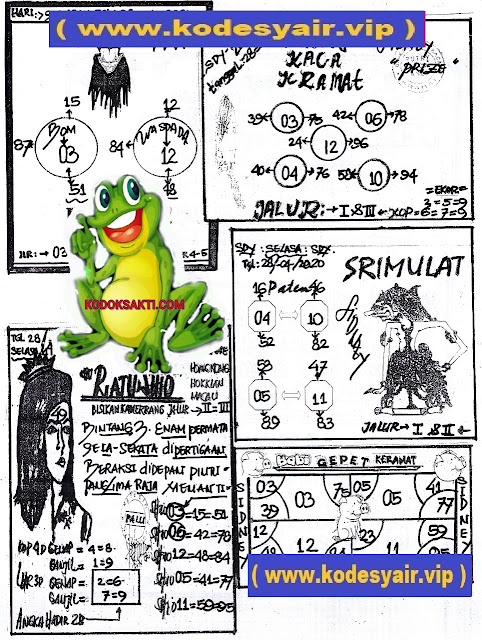 HARI:
( www.kodesyair.vip )
15
12
BOM
03
87
WASPADA
12
84
51
48
JLR: → 03
R4-5
SDY
tanggal: 28
KACA
KRAMAT
PRIZE"
39 03 75
42 06 78
24 12 96
40 04 76
58 10 94
=EKOR=
3=5=9
JALUR: → I & III ← KOP=6=7=9
KODOKSAKTI.COM
SDY: SELASA: SDX.
Tgl: 28/04/2020
SRIMULAT
16 Paten 46
04 10
52 82
53 47
05 11
89 83
JALUR → I & II ←
TGL 28/4
SELASA
49
RATU JIHO
HONGKONG
HOKKIAN
MACAU
BISIKAN KANJERRANG JALUR → II-III
BINTANG 3. ENAM PERMATA
SELA-SEKATA DIPERTIGAAN
BERAKSI DIDEPAN PUTRI-
PANGLIMA RAJA
PALU
SHIO 03=15=51
SHIO 06=42=78
SHIO 12=48=84
SHIO 05=41=77
SHIO 11=59=95
KOP 4D GENAP = 4=8
GANJIL = 1=9
LAR 3D GENAP = 2=6
GANJIL = 7=9
ANGKA HADIR 28
BABI GEPET KERAMAT
SIDNEY
SIDNEY
03 03 75 05 05 41
39 77
12 12 59
23
( www.kodesyair.vip )